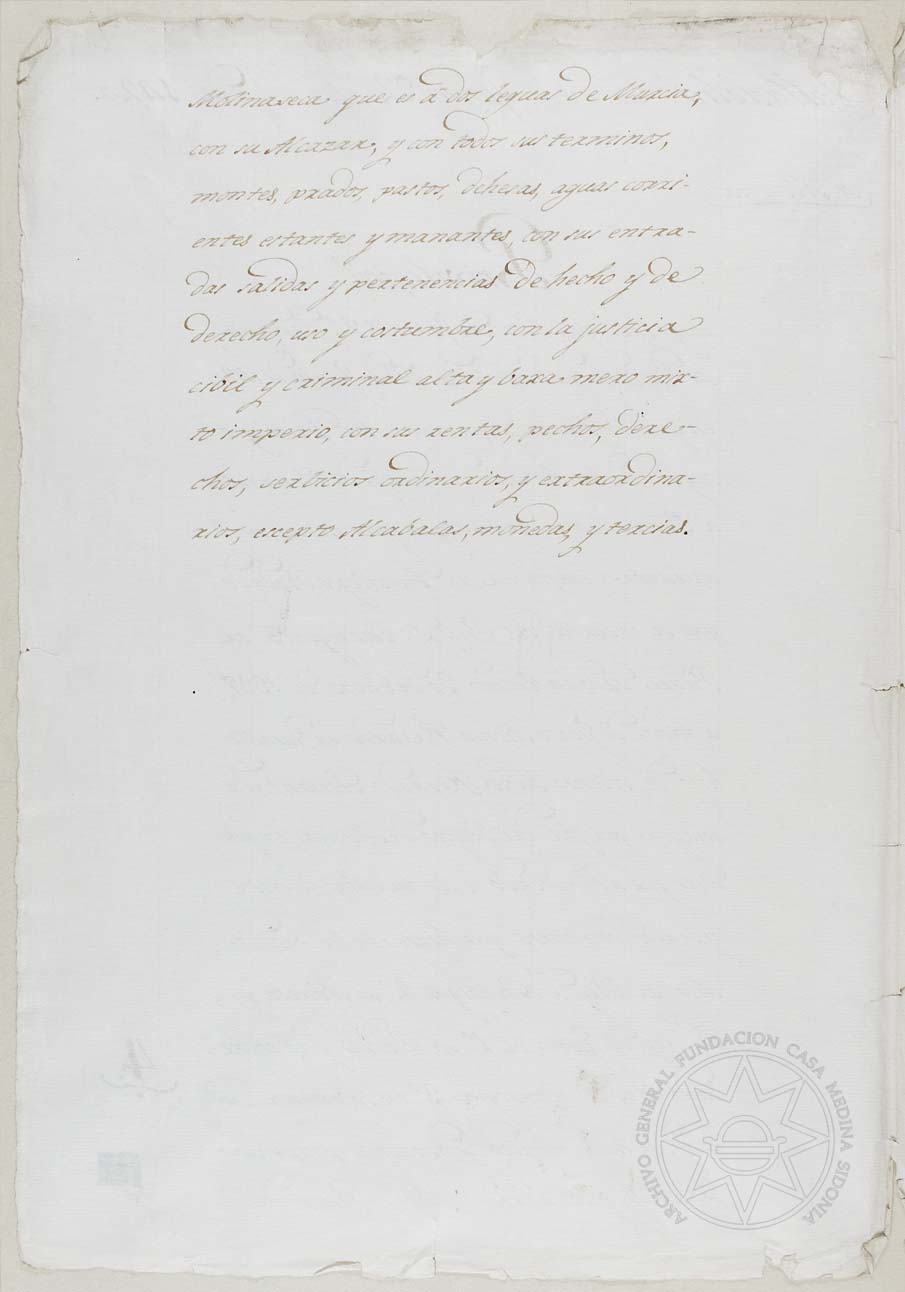 Molinaseca que es á dos leguas de Murcia,
con su Alcazar, y con todos sus terminos,
montes, prados, pastos, dehesas, aguas corri-
entes estantes y manantes, con sus entra-
das salidas y pertenencias de hecho y de
derecho, uso y costumbre, con la justicia
cibil y criminal alta y baxa mero mix-
to imperio, con sus rentas, pechos, dere-
chos, serbicios ordinarios, y extraordina-
rios, escepto Alcabalas, monedas, y tercias.
ARCHIVO GENERAL FUNDACION CASA MEDINA SIDONIA